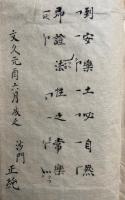 到安樂土必自然
即證法性之常樂
文久元酉六月成之
沙門
正純